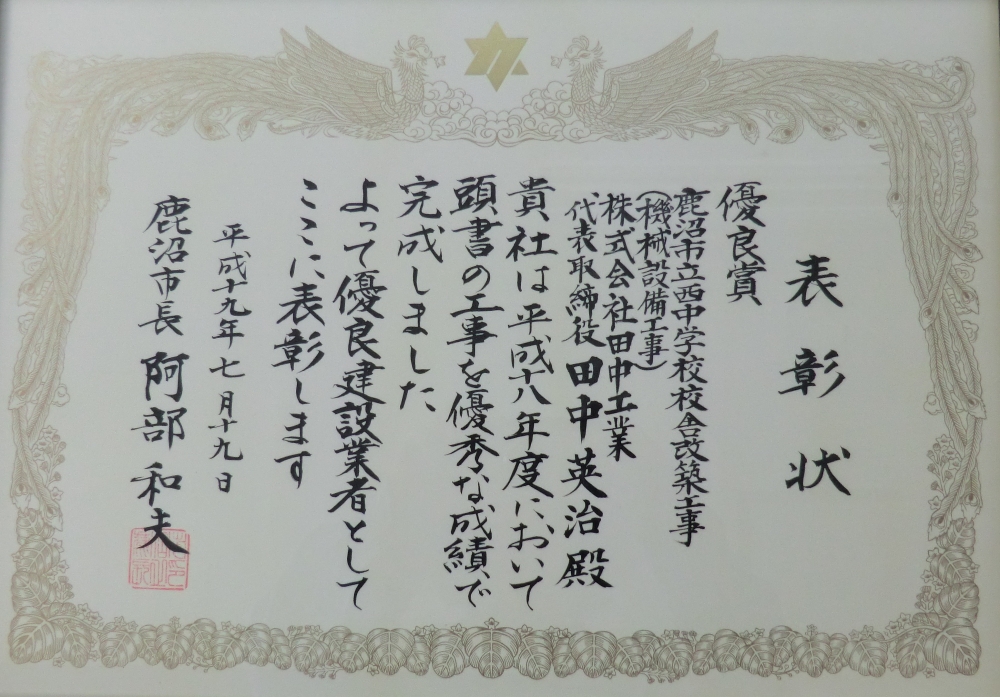 表彰状
優良賞
鹿沼市立西中学校校舎改築工事
(機械設備工事)
株式会社田中工業
代表取締役 田中英治殿
貴社は平成十八年度において
頭書の工事を優秀な成績で
完成しました
よって優良建設業者として
ここに表彰します
平成十九年七月十九日
鹿沼市長 阿部和夫